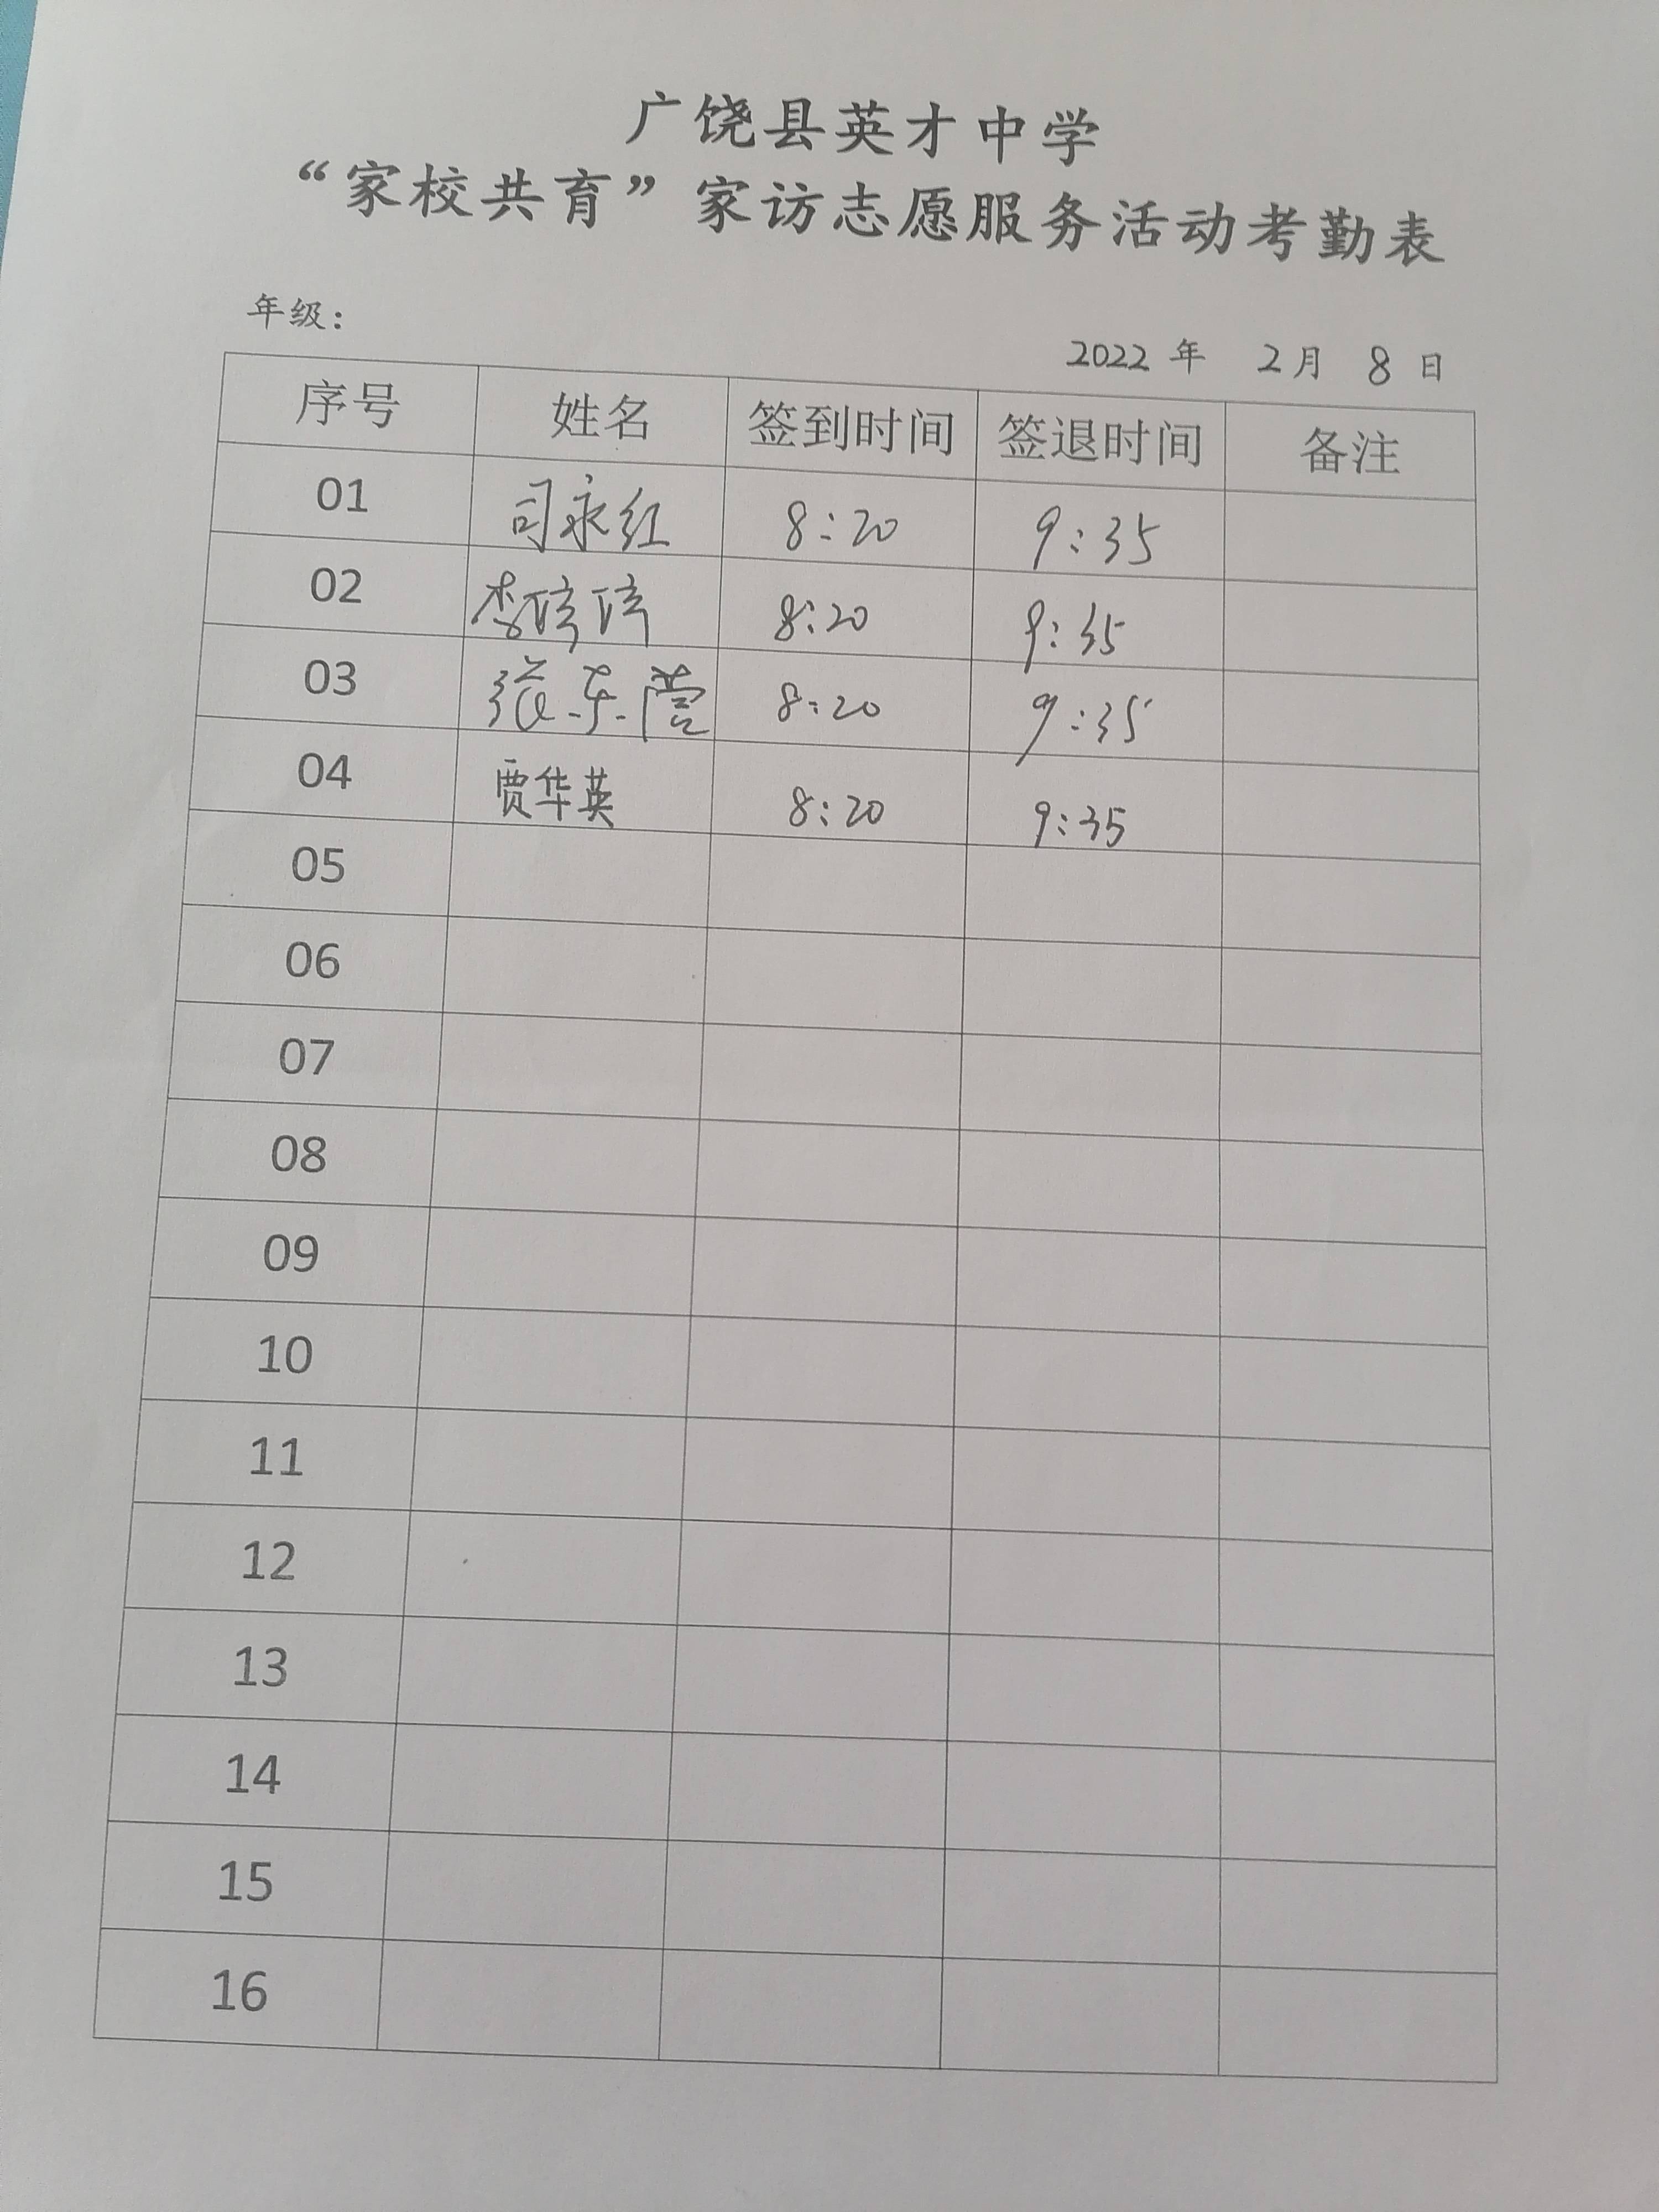 广饶县英才中学
“家校共育”家访志愿服务活动考勤表
年级：
2022 年 2月 8 日
序号 姓名 签到时间 签退时间 备注
01 司永红 8:20 9:35
02 李 8:20 9:35
03 张东营 8:20 9:35
04 贾华英 8:20 9:35
05
06
07
08
09
10
11
12
13
14
15
16